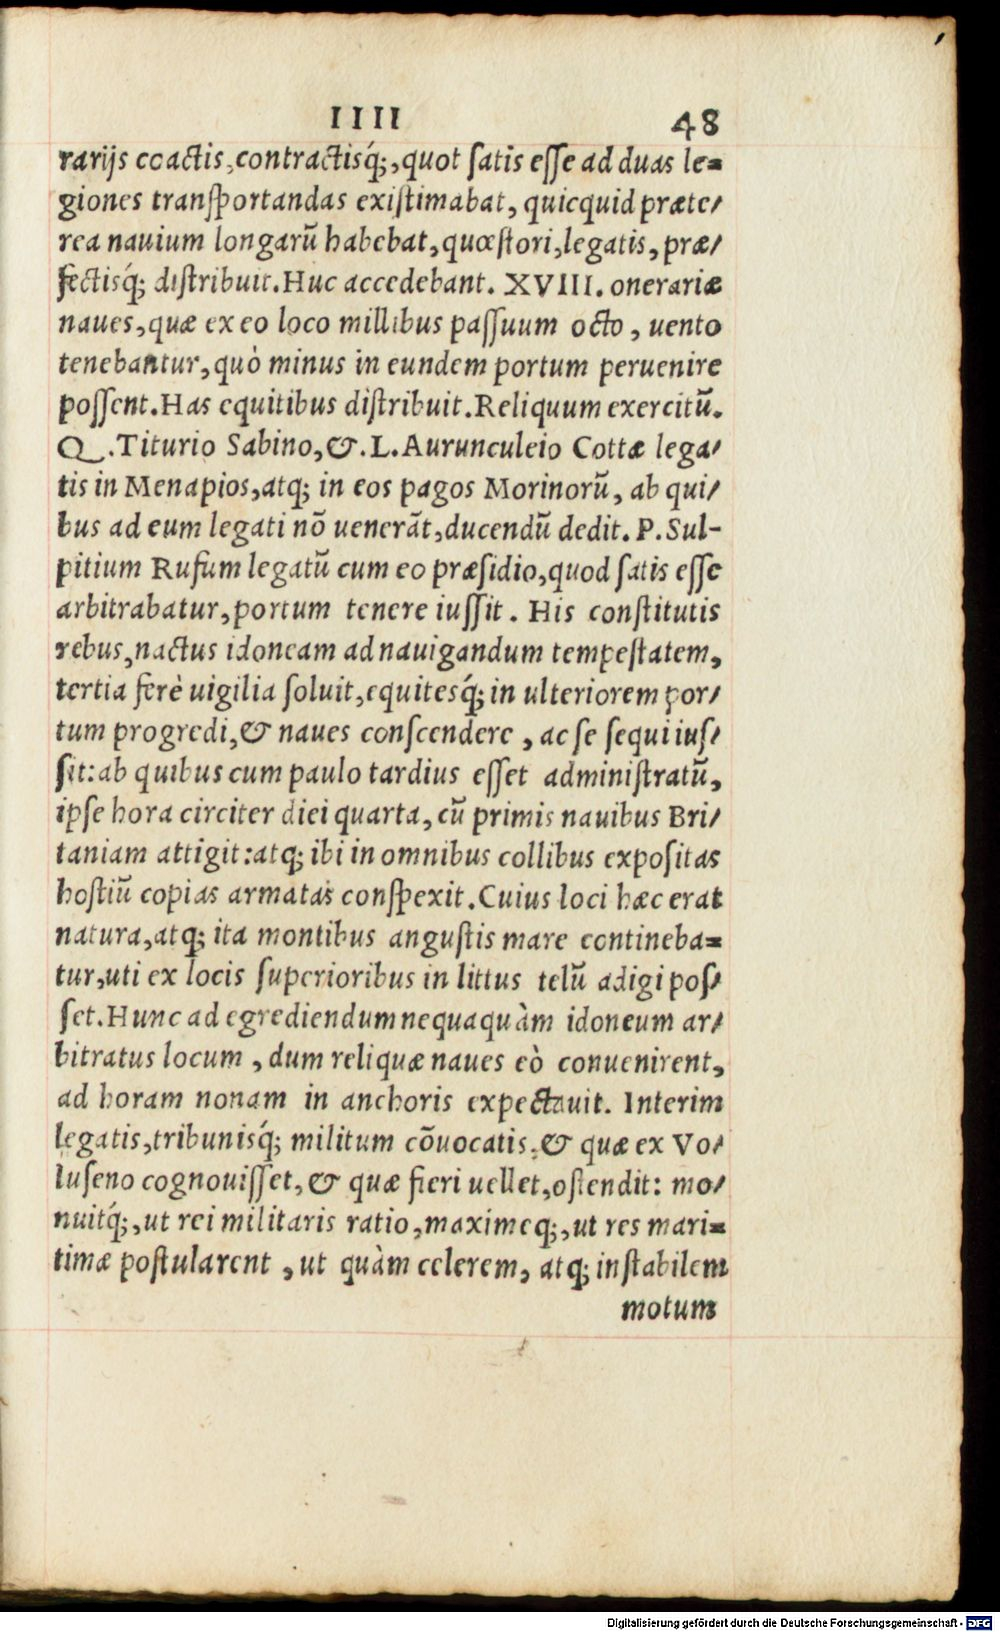 IIII 48
rarijs coactis, contractisq́;, quot ſatis eſſe ad duas le=
giones tranſportandas exiſtimabat, quicquid præte/
rea nauium longarũ habebat, quæſtori, legatis, præ/
fectisq́; diſtribuit. Huc accedebant. XVIII. onerariæ
naues, quæ ex eo loco millibus paſſuum octo, uento
tenebantur, quò minus in eundem portum peruenire
poſſent. Has equitibus diſtribuit. Reliquum exercitũ.
Q. Titurio Sabino, &. L. Aurunculeio Cottæ lega/
tis in Menapios, atq; in eos pagos Morinorũ, ab qui/
bus ad eum legati nõ uenerãt, ducendũ dedit. P. Sul-
pitium Rufum legatũ cum eo præſidio, quod ſatis eſſe
arbitrabatur, portum tenere iuſſit. His conſtitutis
rebus, nactus idoneam ad nauigandum tempeſtatem,
tertia ferè uigilia ſoluit, equitesq́; in ulteriorem por/
tum progredi, & naues conſcendere, ac ſe ſequi iuſ/
ſit: ab quibus cum paulo tardius eſſet adminiſtratũ,
ipſe hora circiter diei quarta, cũ primis nauibus Bri/
taniam attigit: atq; ibi in omnibus collibus expoſitas
hoſtiũ copias armatas conſpexit. Cuius loci hæc erat
natura, atq; ita montibus anguſtis mare contineba=
tur, uti ex locis ſuperioribus in littus telũ adigi poſ/
ſet. Hunc ad egrediendum nequaquàm idoneum ar/
bitratus locum, dum reliquæ naues eò conuenirent,
ad horam nonam in anchoris expectauit. Interim
legatis, tribunisq́; militum cõuocatis, & quæ ex Vo/
luſeno cognouiſſet, & quæ fieri uellet, oſtendit: mo/
nuitq́;, ut rei militaris ratio, maximeq;, ut res mari=
timæ poſtularent, ut quàm celerem, atq; inſtabilem
motum
Digitalisierung gefördert durch die Deutsche Forschungsgemeinschaft - DFG